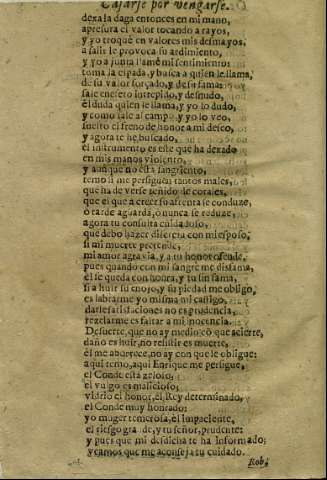 Casarse por vengarse.
dexa la daga entonces en mi mano,
apresura el valor tocando a rayos,
y yo troquè en valores mis desmayos,
a salir le provoca su ardimiento,
y yo a junta llamè mi sentimiento:
toma la espada, y busca a quien le llama,
de su valor forçado, y de su fama
sale en esso intrepido, y desnudo,
el duda quien le llama, y yo lo dudo,
y como sale al campo, y yo lo veo,
suelto el freno de honor a mi deseo,
y agora te he buscado,
el instrumento es este que ha dexado
en mis manos violento,
y aunque no està sangriento,
temo si me persiguen tantos males,
que ha de verse teñido de corales,
que el que a creer su afrenta se conduze,
ò tarde aguarda, ò nunca se reduze,
agora tu consulta cuidadoso,
que debo hazer discreta con mi esposo,
si mi muerte pretende,
mi amor agravia, y a tu honor ofende,
pues quando con mi sangre me disfama,
el se queda con honra, y tu sin fama,
si a huir su enojo, y su piedad me obligo,
es labrarme yo misma mi castigo,
darle satisfaciones no es prudencia,
rezelarme es faltar a mi inocencia.
De suerte, que no ay medio en que acierte,
daño es huir, no resistir es muerte,
èl me aborrece, no ay con que le obligue:
aqui temo, aqui Enrique me persigue,
el Conde està zeloso,
el vulgo es malicioso;
vidrio el honor, el Rey determinado,
el Conde muy honrado;
yo muger temerosa, èl impaciente,
el riesgo grande, y tu señor, prudente:
y pues que mi desdicha te ha informado;
veamos que me aconseja tu cuidado.
Rob.